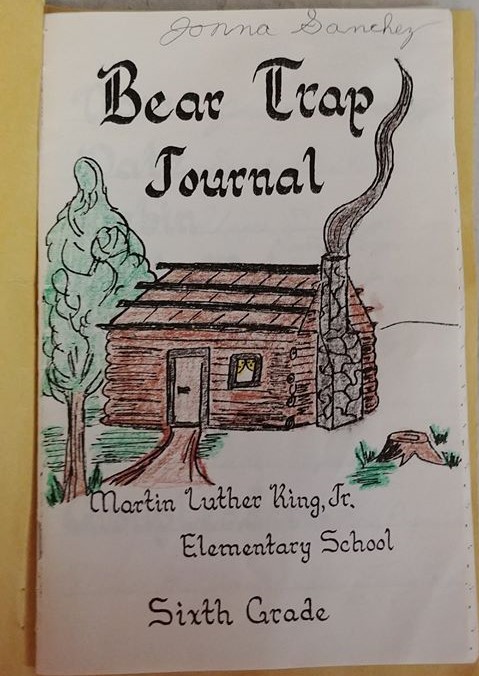 Jonna Sanchez
Bear Trap
Journal
Martin Luther King, Jr.
Elementary School
Sixth Grade